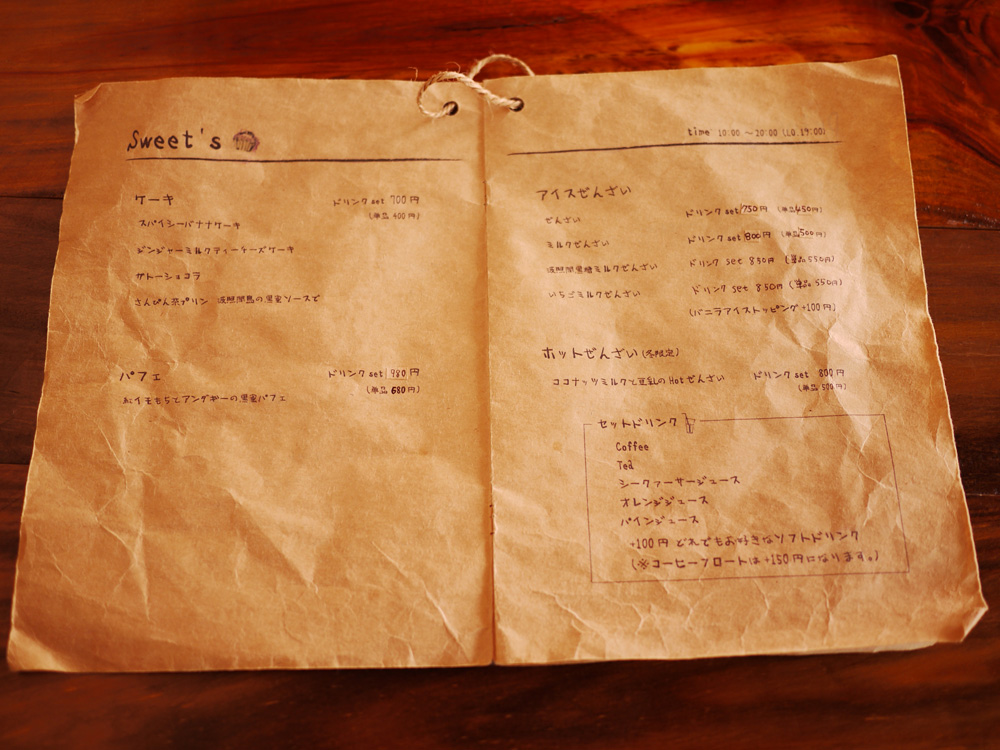 Sweet's
ケーキ ドリンクset 700円
(単品 400円)
スパイシーバナナケーキ
ジンジャーミルクティーチーズケーキ
ガトーショコラ
さんぴん茶プリン 波照間島の黒蜜ソースで
パフェ ドリンクset 980円
(単品 680円)
紅イモもちとアンダギーの黒蜜パフェ
time 10:00 〜20:00 (LO.19:00)
アイスぜんざい
ぜんざい ドリンクset 750円 (単品450円)
ミルクぜんざい ドリンクset 800円 (単品500円)
波照間黒糖ミルクぜんざい ドリンク set 850円 (単品550円)
いちごミルクぜんざい ドリンク set 850円 (単品550円)
(バニラアイストッピング+100円)
ホットぜんざい(冬限定)
ココナッツミルクと豆乳のHotぜんざい ドリンクset 800円
(単品 500円)
セットドリンク
Coffee
Tea
シークァーサージュース
オレンジジュース
パインジュース
+100円 どれでもお好きなソフトドリンク
(※コーヒーフロートは+150円になります。)